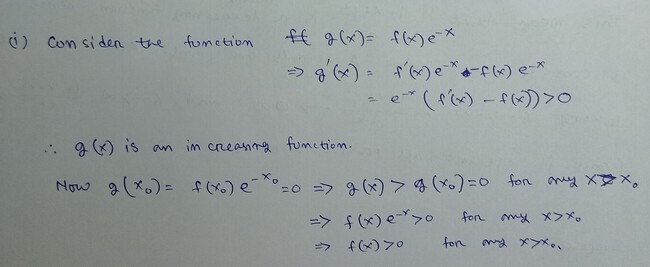 (i) Consider the function g(x) = f(x) e^-x
=> g'(x) = f'(x) e^-x - f(x) e^-x
= e^-x (f'(x) - f(x)) > 0
∴ g(x) is an increasing function.
Now g(x₀) = f(x₀) e^-x₀ = 0 => g(x) > g(x₀) = 0 for any x > x₀
=> f(x) e^-x > 0 for any x > x₀
=> f(x) > 0 for any x > x₀.